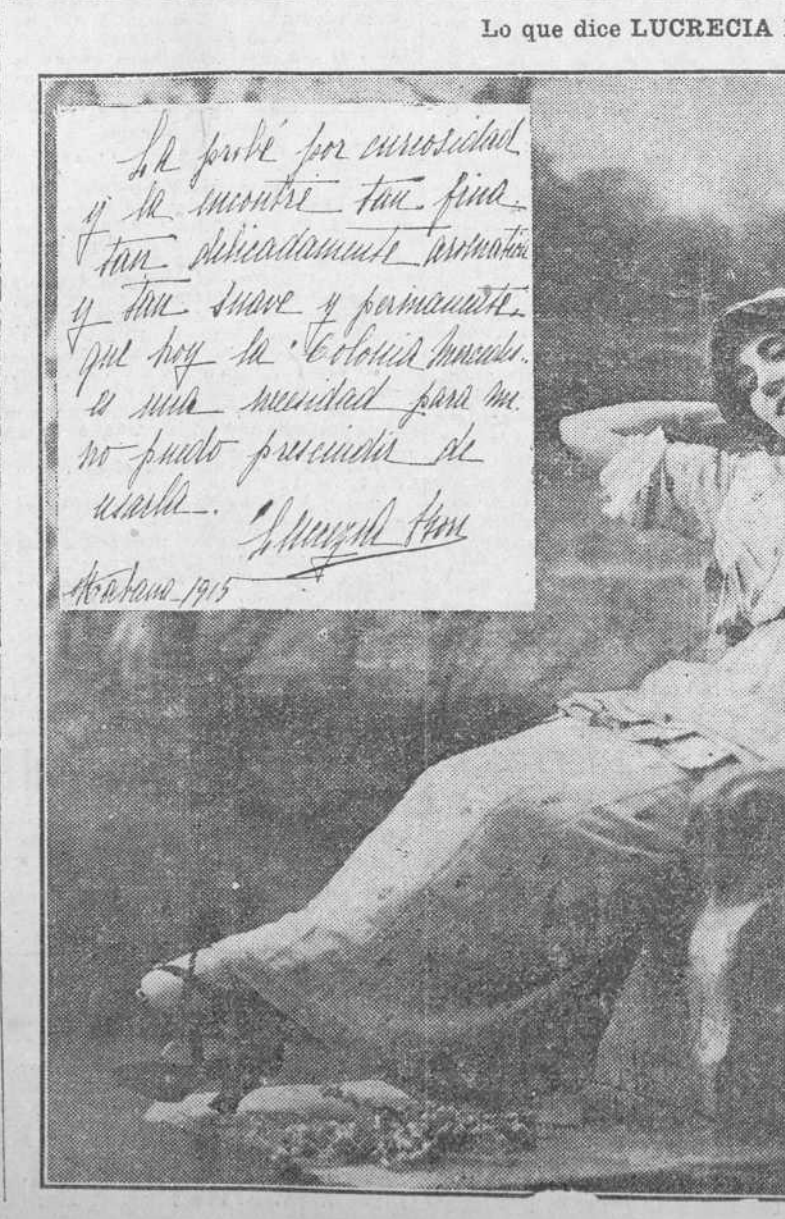 Lo que dice LUCRECIA
La probé por curiosidad
y la encontré tan fina
tan delicadamente
y tan suave y permanente.
que hoy la Colonia Mercedes.
es una necesidad para mi.
no puedo prescindir de
usarla.
Habana 1915